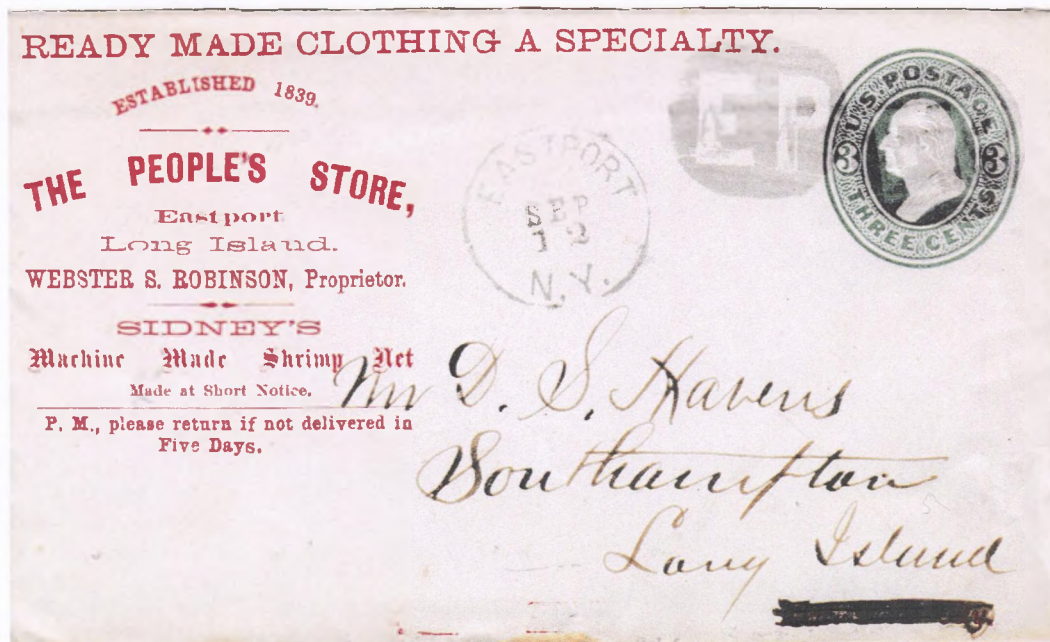 READY MADE CLOTHING A SPECIALTY.
ESTABLISHED 1839.
THE PEOPLE'S STORE,
Eastport
Long Island.
WEBSTER S. ROBINSON, Proprietor.
SIDNEY'S
Machine Made Shrimp Net
Made at Short Notice.
P. M., please return if not delivered in
Five Days.
EASTPORT
SEP
12
N.Y.
EP
U.S. POSTAGE
3 3
THREE CENTS
Mr D. S. Havens
Southampton
Long Island